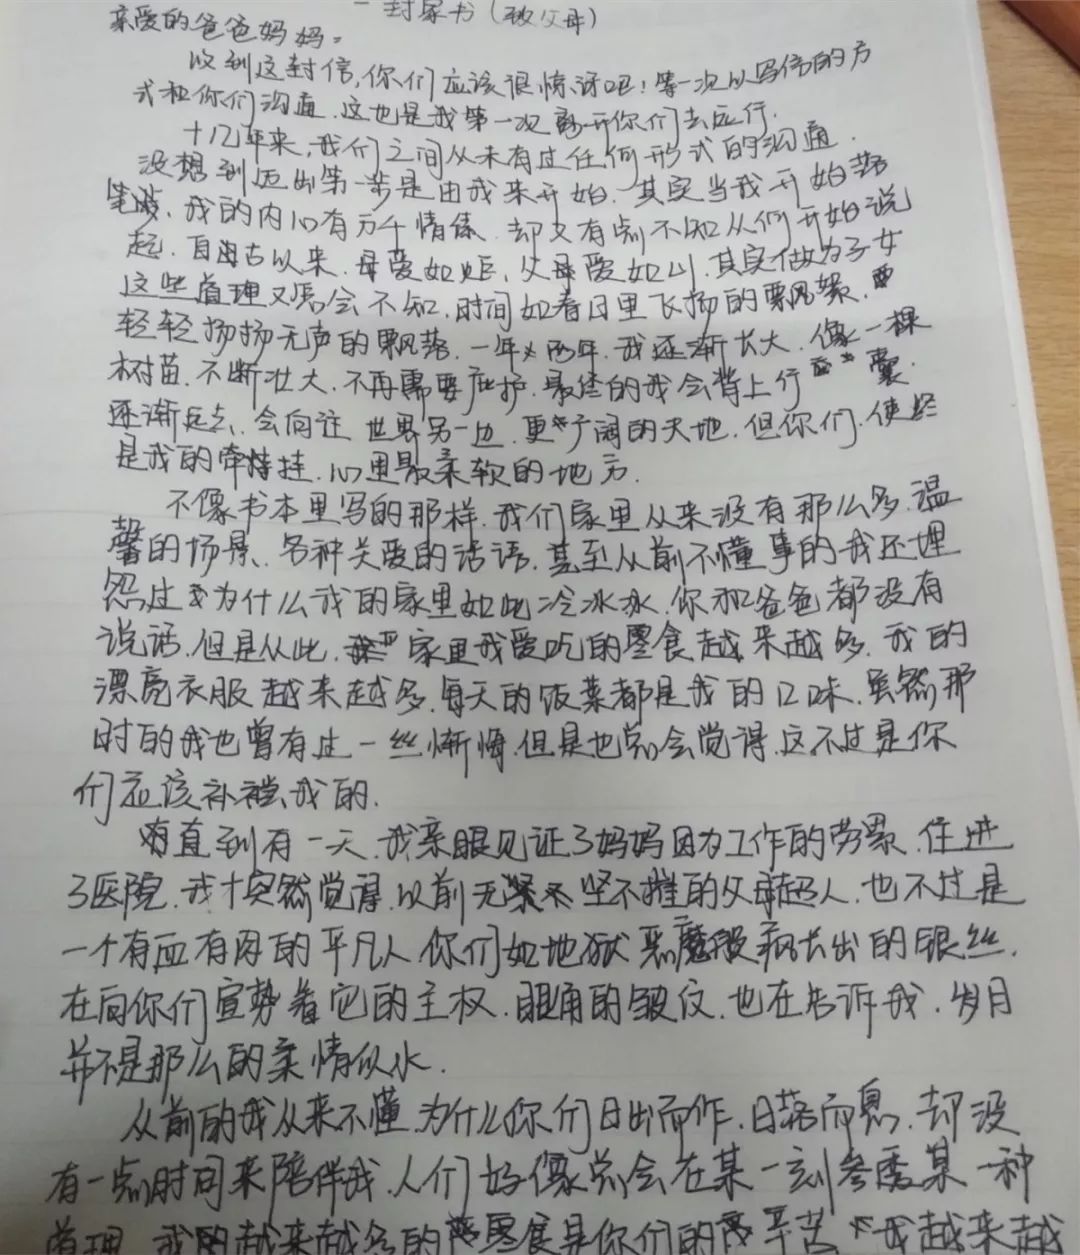 一封家书(致父母)
亲爱的爸爸妈妈。
收到这封信,你们应该很惊讶吧!第一次以写信的方
式和你们沟通.这也是我第一次离开你们去远行.
十几年来,我们之间从未有过任何形式的沟通.
没想到迈出第一步是由我来开始.其实当我开始落
笔时,我的内心有万千情愫.却又有点不知从何开始说
起.自古以来.母爱如炬,父母爱如山.其实做为子女
这些道理又怎会不知.时间如春日里飞扬的飘絮.
轻轻扬扬无声的飘落.一年又两年.我逐渐长大.像一棵
树苗.不断壮大.不再需要庇护.最终的我会背上行囊.
逐渐走远.会向往世界另一边.更广阔的天地.但你们.使终
是我的牵挂.心里最柔软的地方.
不像书本里写的那样.我们家里从来没有那么多温
馨的场景、各种关爱的话语.甚至从前不懂事的我还埋
怨过为什么我的家里如此冷冰冰.你和爸爸都没有
说话.但是从此.家里我爱吃的零食越来越多.我的
漂亮衣服越来越多.每天的饭菜都是我的口味.虽然那
时的我也曾有过一丝惭悔.但是也总会觉得.这不过是你
们应该补偿我的.
直到有一天.我亲眼见证了妈妈因为工作的劳累.住进
了医院.我才突然觉得.以前无坚不摧的父母超人.也不过是
一个有血有肉的平凡人.你们如地狱恶魔般疯长出的银丝.
在向你们宣势着它的主权.眼角的皱纹.也在告诉我.岁月
并不是那么的柔情似水.
从前的我从来不懂.为什么你们日出而作.日落而息.却没
有一点时间来陪伴我.人们好像总会在某一刻参透某一种
道理.我的越来越多的零食是你们的辛苦 我越来越